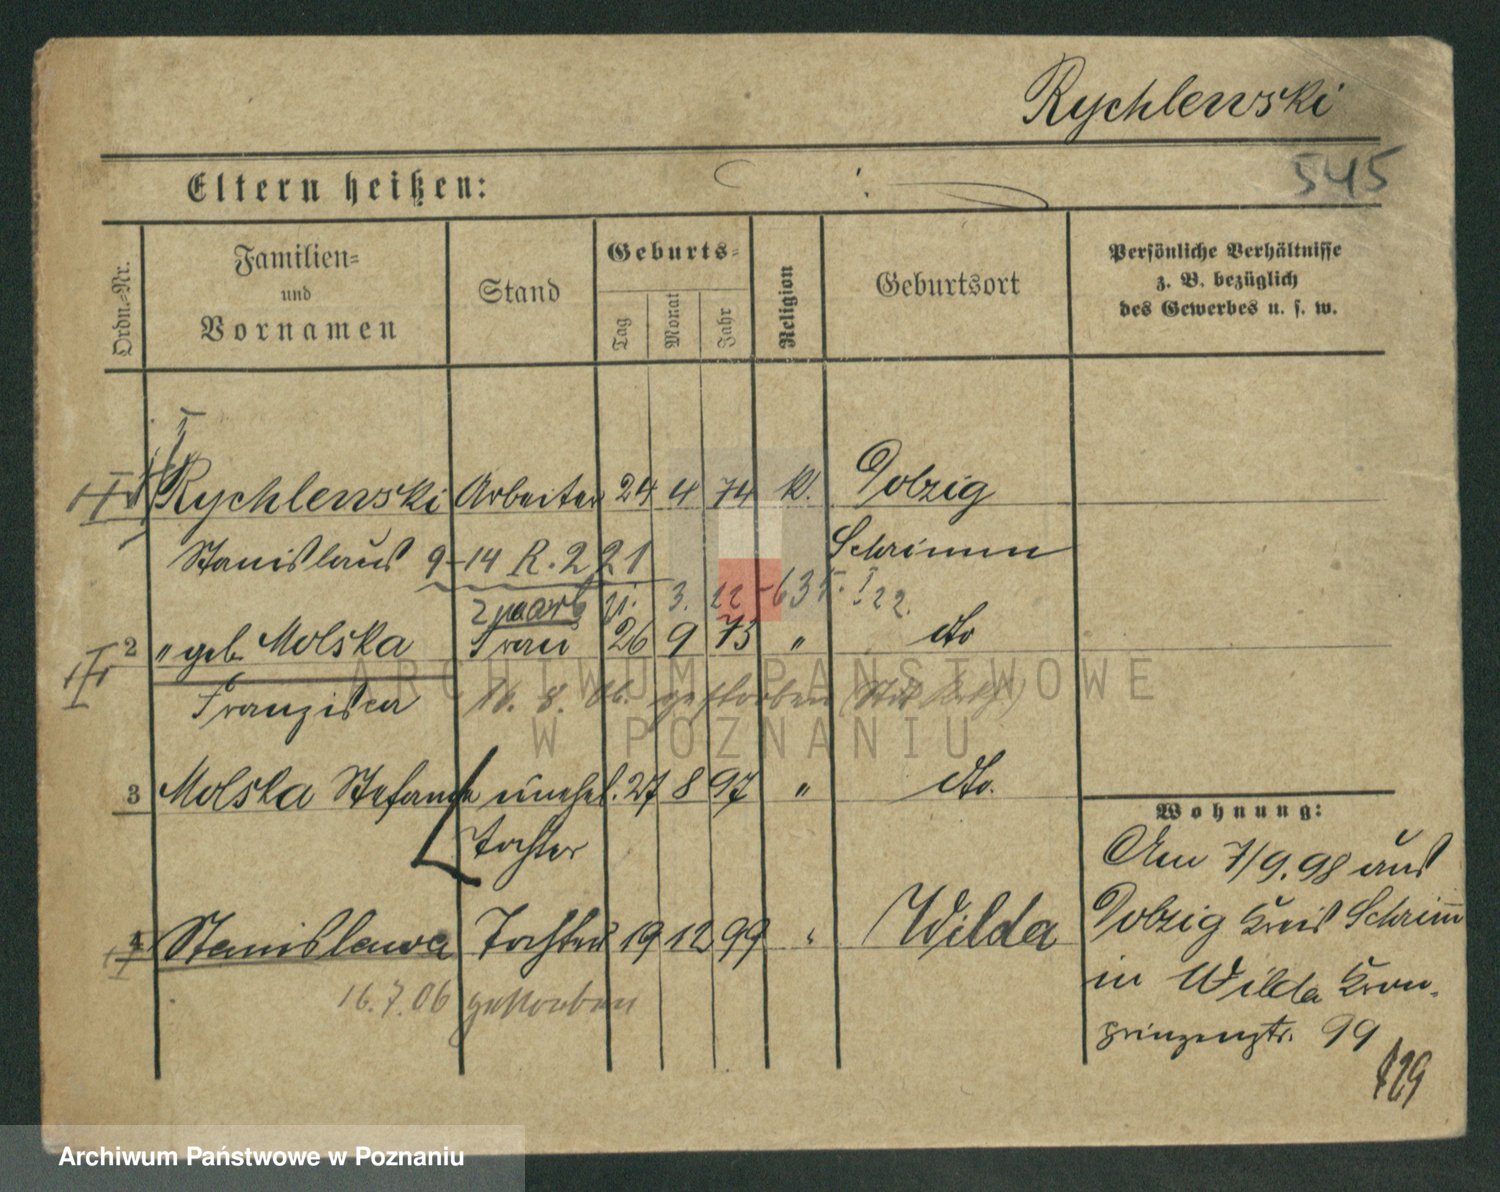 Rychlewski
545
Eltern heißen:
Ordn.=Nr.
Familien=
und
Vornamen
Stand
Geburts=
Tag
Monat
Jahr
Religion
Geburtsort
Persönliche Verhältnisse
z. B. bezüglich
des Gewerbes u. s. w.
Rychlewski Arbeiter 24 4 74 k. Dolzig
Stanislaus 9-14 R. 2 21 Schrimm
3. 22 -635. I 22.
2 " geb. Molska Frau 26 9 73 " dto
Franziska 16. 8. 06. gestorben
3 Molska Stefania unehel. 27 8 97 " dto.
Tochter
Wohnung:
4 Stanislawa Tochter 19 12 99 " Wilda
16.7.06 gestorben
Am 7/9.98 aus
Dolzig Kreis Schrimm
in Wilda Kron-
prinzenstr. 99
129
ARCHIWUM PAŃSTWOWE
W POZNANIU
Archiwum Państwowe w Poznaniu